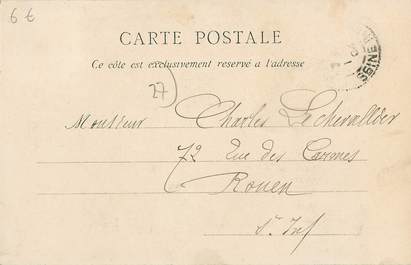 6 €
CARTE POSTALE
Ce côté est exclusivement reservé a l'adresse
27
SEINE
Monsieur Charles Lechevallier
72 Rue des Carmes
Rouen
S. Inf